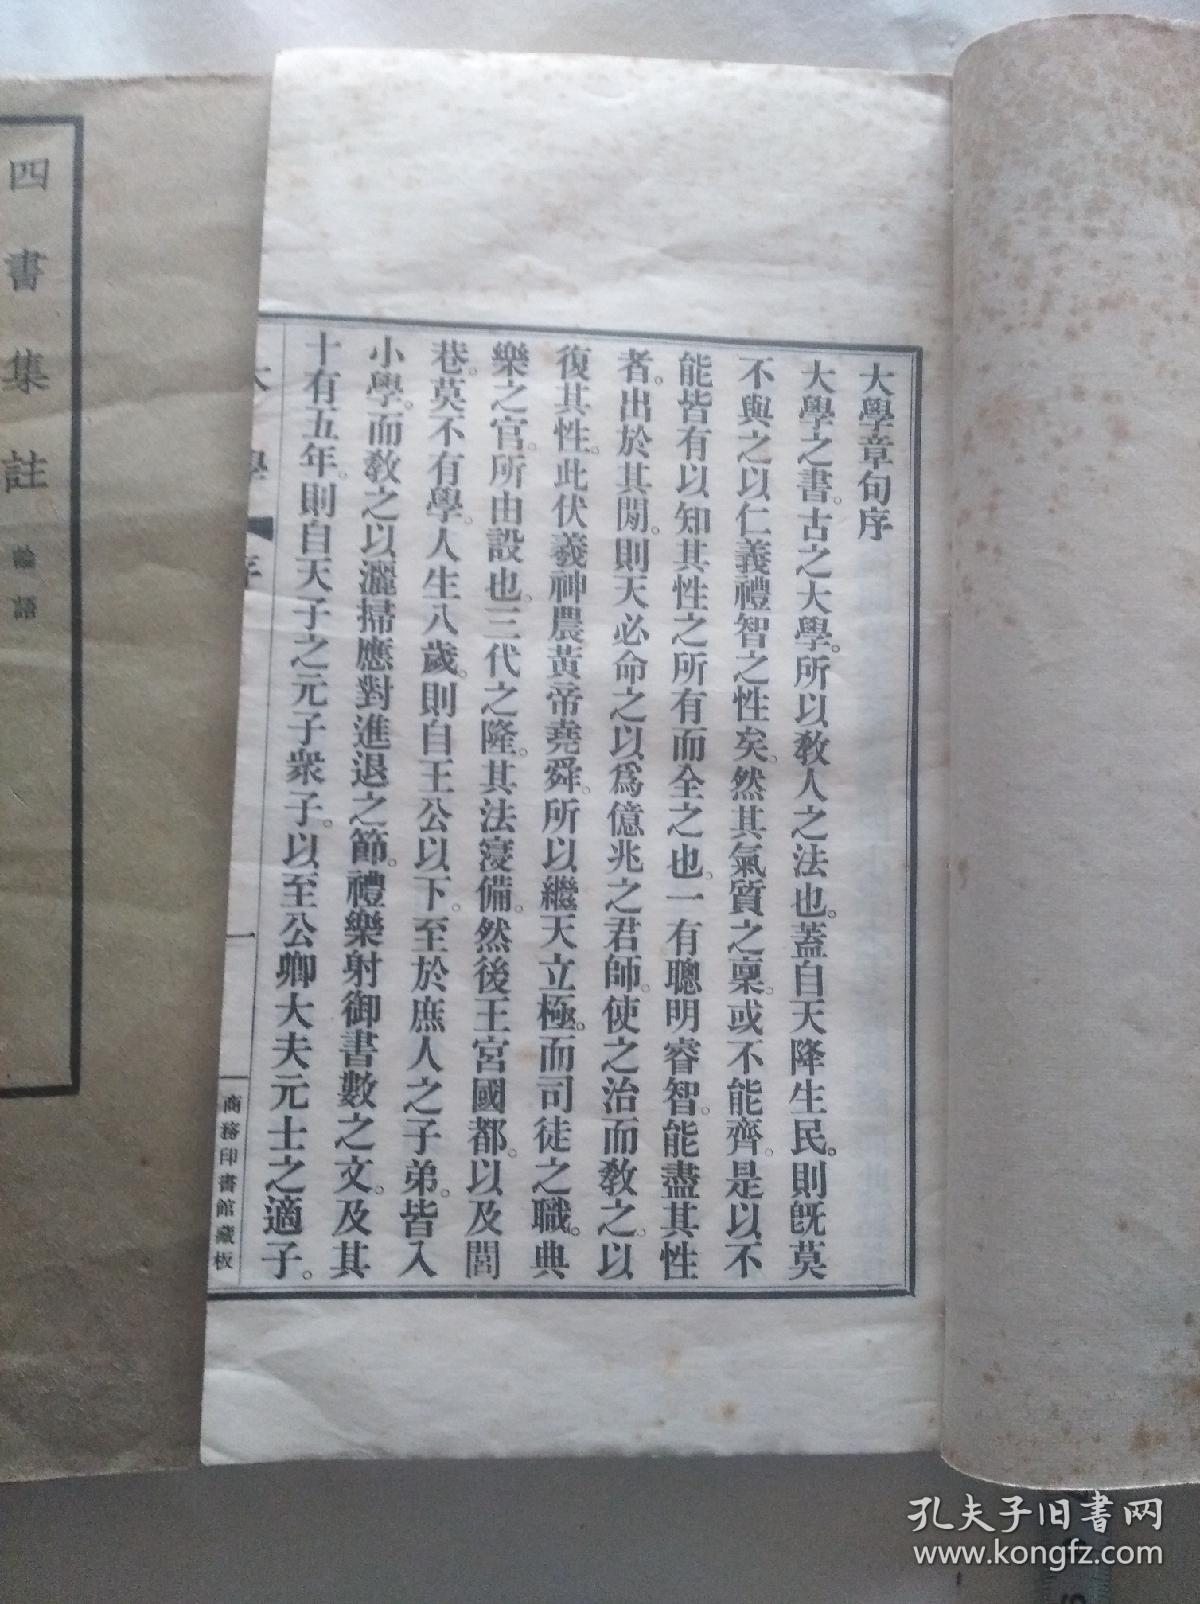 大學章句序
大學之書。古之大學。所以敎人之法也。蓋自天降生民。則旣莫
不與之以仁義禮智之性矣。然其氣質之稟。或不能齊。是以不
能皆有以知其性之所有而全之也。一有聰明睿智。能盡其性
者。出於其閒。則天必命之以爲億兆之君師。使之治而敎之。以
復其性。此伏羲神農黃帝堯舜。所以繼天立極。而司徒之職。典
樂之官。所由設也。三代之隆。其法寖備。然後王宮國都。以及閭
巷。莫不有學。人生八歲。則自王公以下。至於庶人之子弟。皆入
小學。而敎之以灑掃應對進退之節。禮樂射御書數之文。及其
十有五年。則自天子之元子衆子。以至公卿大夫元士之適子。
大學 序
一
商務印書館藏板
四書集註 論語
孔夫子旧书网
www.kongfz.com